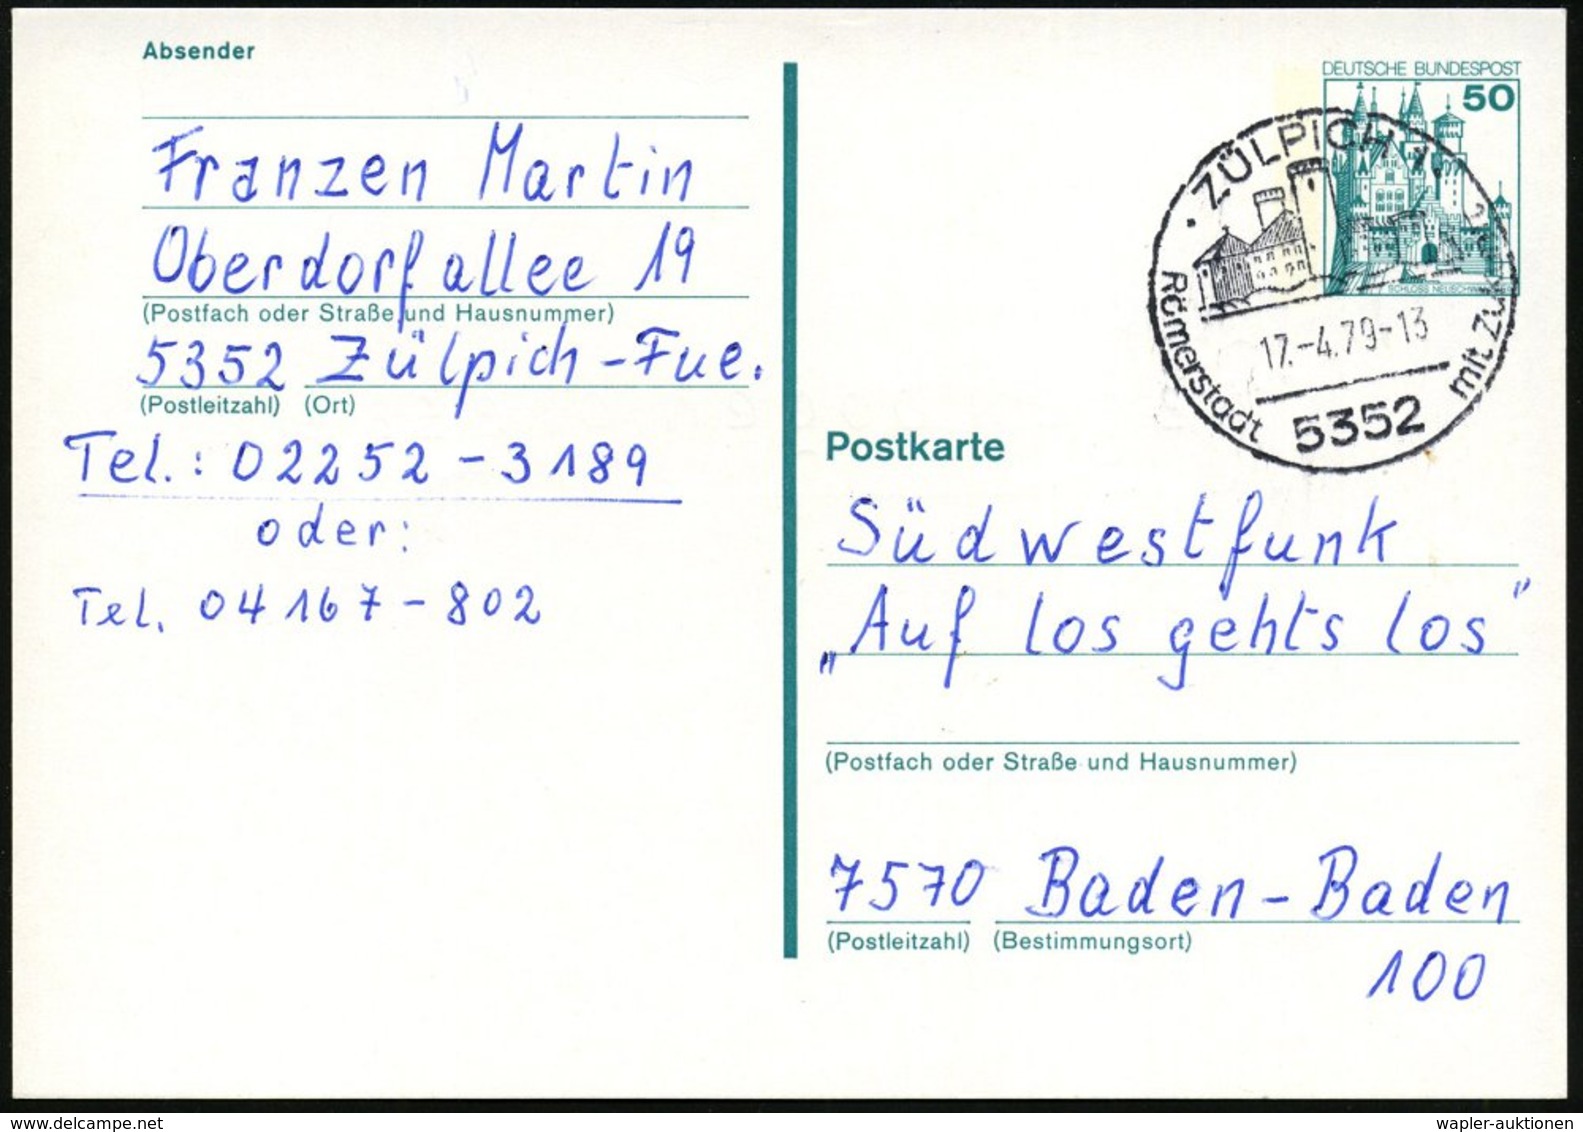 Absender
Franzen Martin
Oberdorfallee 19
(Postfach oder Straße und Hausnummer)
5352 Zülpich-Fue.
(Postleitzahl) (Ort)
Tel.: 02252-3189
oder:
Tel. 04167-802
DEUTSCHE BUNDESPOST
50
SCHLOSS
ZÜLPICH 1
17.-4.79-13
Römerstadt mit
5352
Postkarte
Südwestfunk
„Auf los gehts los"
(Postfach oder Straße und Hausnummer)
7570 Baden-Baden
(Postleitzahl) (Bestimmungsort)
100
wapler-auktionen